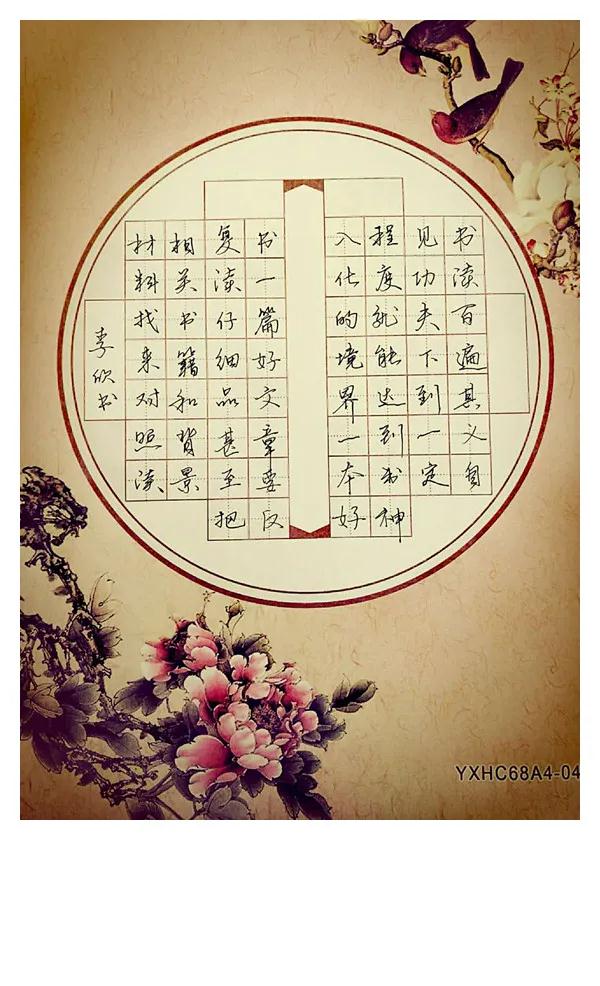 书读百遍其义自
见功夫下到一定
程度就能达到出神
入化的境界一本好
书一篇好文章要反
复读仔细品甚至把
相关书籍和背景
材料找来对照读
李欣书
YXHC68A4-04